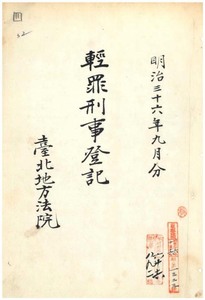 明治三十六年九月分
輕罪刑事登記
臺北地方法院